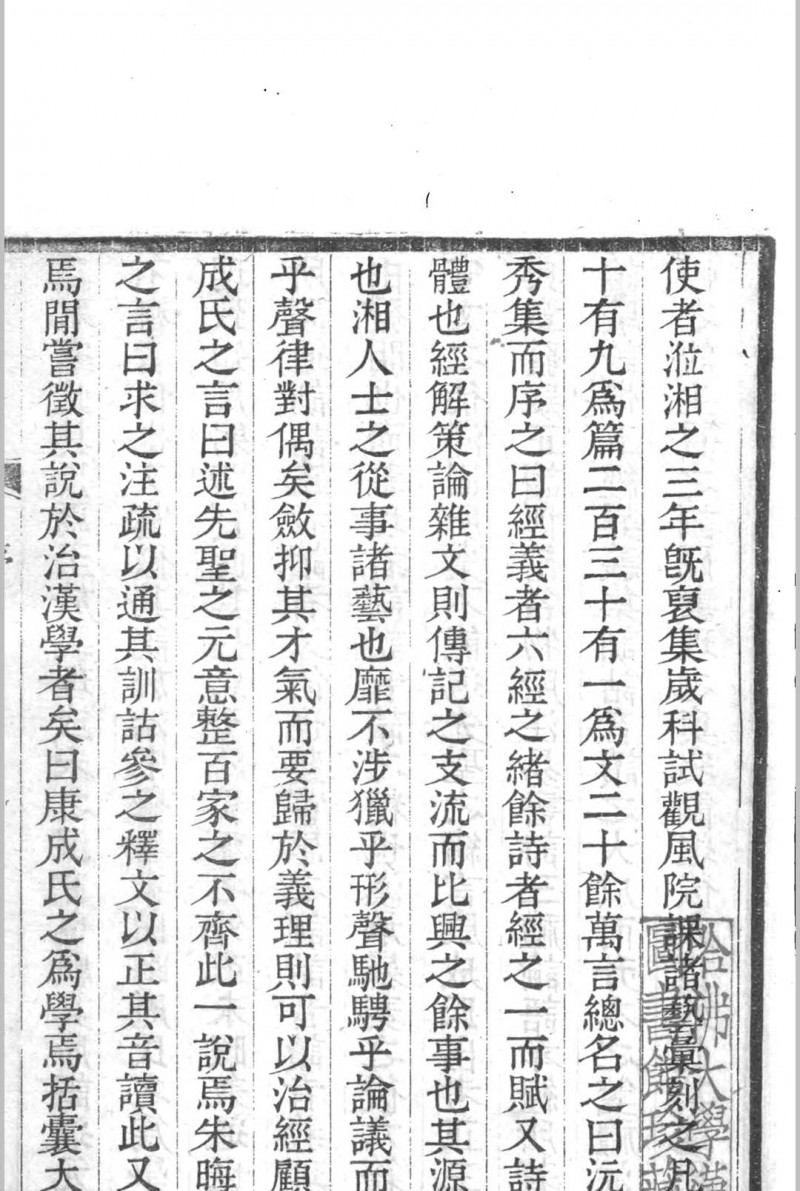 使者涖湘之三年旣裒集歲科試觀風院課諸藝彙刻之凡
十有九爲篇二百三十有一爲文二十餘萬言總名之曰沅
秀集而序之曰經義者六經之緒餘詩者經之一而賦又詩
體也經解策論雜文則傳記之支流而比興之餘事也其源
也湘人士之從事諸藝也靡不涉獵乎形聲馳騁乎論議而
乎聲律對偶矣斂抑其才氣而要歸於義理則可以治經顧
成氏之言曰述先聖之元意整百家之不齊此一說焉朱晦
之言曰求之注疏以通其訓詁參之釋文以正其音讀此又
焉閒嘗徵其說於治漢學者矣曰康成氏之爲學焉括囊大
哈佛大學漢
圖書館